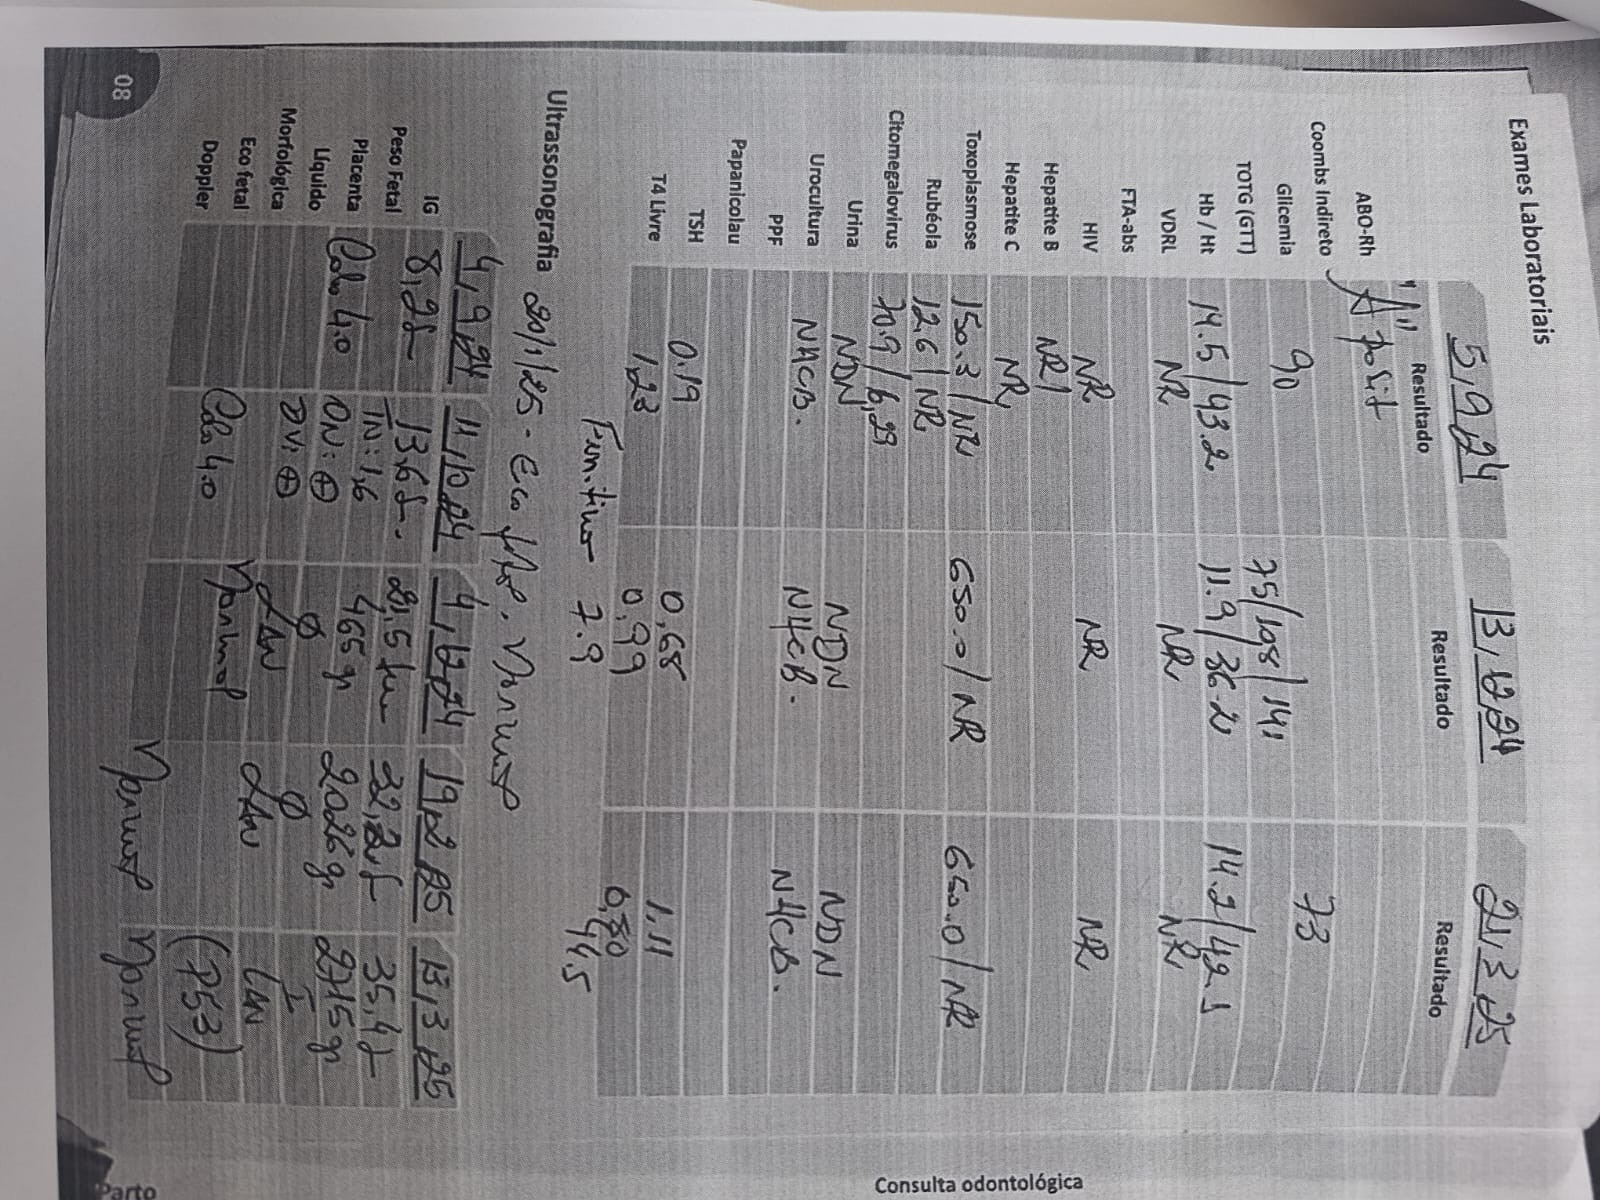 Exames Laboratoriais
5, 9, 24 13, 12, 24 21, 3, 25
Resultado Resultado Resultado
ABO-Rh "A" Posit
Coombs Indireto
Glicemia 90 73
TOTG (GTT) 75/198/141
Hb / Ht 14.5/43.2 11.9/36.2 14.2/42.1
VDRL NR NR NR
FTA-abs
HIV NR NR NR
Hepatite B NR
Hepatite C NR
Toxoplasmose 150.3/NR 650.0/NR 650.0/NR
Rubéola 12.6/NR
Citomegalovirus 70.9/6,29
Urina NDN NDN NDN
Urocultura NHCB. NHCB. NHCB.
PPF
Papanicolau
TSH 0.19 0,68 1,11
T4 Livre 1,23 0,99 0,80
7.9 44,5
Ultrassonografia 20/1/25 - Eco
4, 9, 24 11, 10, 24 4, 12, 24 19, 2, 25 13, 3, 25
IG 8,2s 13,6s 21,5 32,2s 35,4s
Peso Fetal TN: 1,6 465 gr 2026 gr 2715 gr
Placenta Colo 4.0 ON: ⊕ Ø Ø I
Líquido DV: ⊕ LAN LAN LAN
Morfológica Normal
Eco fetal Colo 4.0 (P53)
Doppler Normal Normal
08
Consulta odontológica
Parto